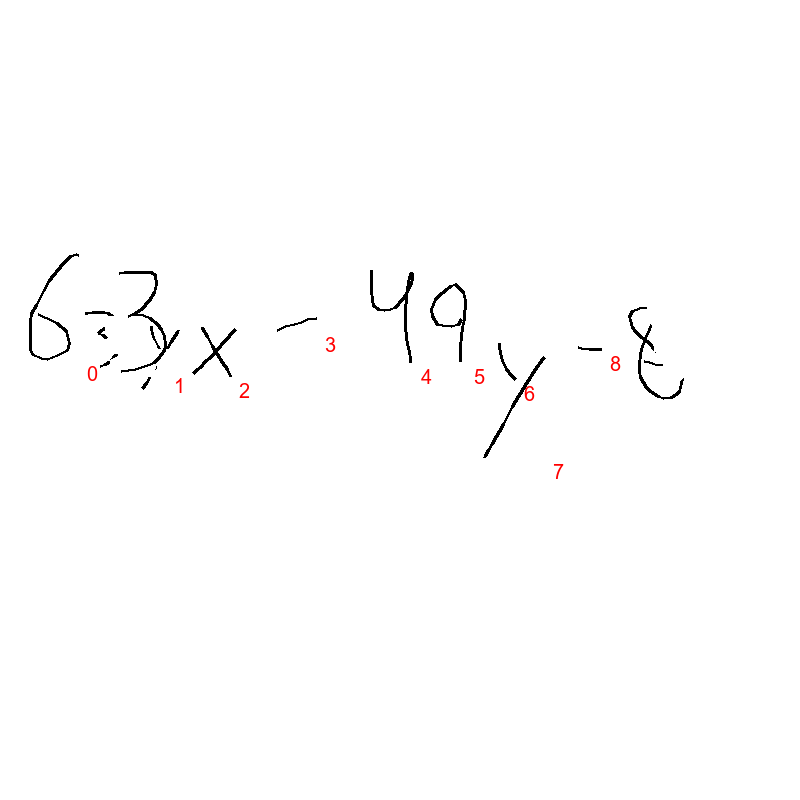 63x - 49y - 8
0 1 2 3 4 5 6 7 8